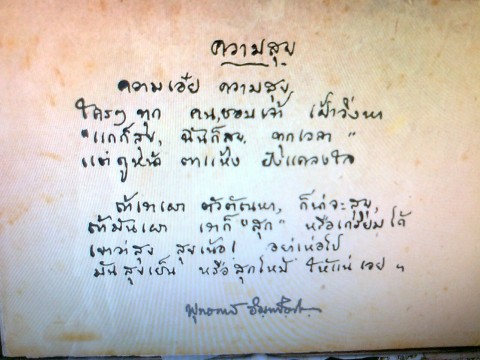 ความสุข
ความเอ๋ย ความสุข,
ใครๆ ทุก คน, ชอบเจ้า เฝ้าวิ่งหา
"แกก็สุข, ฉันก็สุข, ทุกเวลา"
แต่ดูหน้า ตาแห้ง ยังแคลงใจ
ถ้าเราเผา ตัวตัณหา, ก็น่าจะสุข,
ถ้ามันเผา เราก็ "สุก" หรือเกรียมได้
เขาว่าสุข สุขเน้อ! อย่าเห่อไป
มันสุขเย็น หรือสุกไหม้ ให้แน่เอย ฯ
พุทธทาส อินฺทปญฺโญ